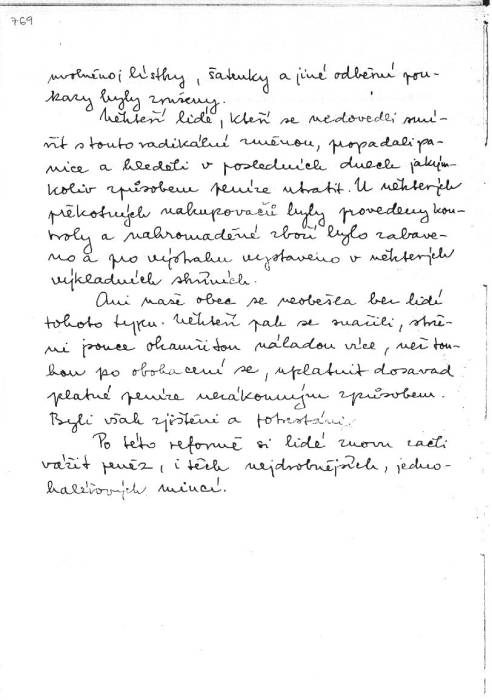 769
uvolněnoj lístky, šatenky a jiné odběrní pou-
kazy byly zrušeny.
Někteří lidé, kteří se nedovedli smí-
řit s touto radikální změnou, propadali pa-
nice a hleděli v posledních dnech jakým-
koliv způsobem peníze utratit. U některých
překotných nakupovačů byly provedeny kon-
troly a nahromaděné zboží bylo zabave-
no a pro výstrahu vystaveno v některých
výkladních skříních.
Ani naše obec se neobešla bez lidí
tohoto typu. Někteří pak se snažili,
ni pouze okamžitou náladou více, než tou-
hou po obohacení se, uplatnit dosavad
platné peníze nezákonným způsobem.
Byli však zjištěni a potrestáni.
Po této reformě si lidé znovu začli
vážit peněz, i těch nejdrobnějších, jedno-
haléřových mincí.